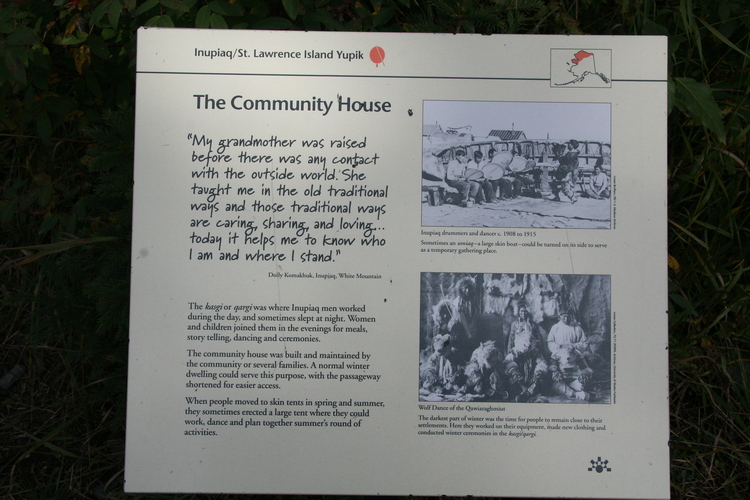 Inupiaq/St. Lawrence Island Yupik
The Community House
"My grandmother was raised
before there was any contact
with the outside world. She
taught me in the old traditional
ways and those traditional ways
are caring, sharing, and loving...
today it helps me to know who
I am and where I stand."
Dolly Komakhuk, Inupiaq, White Mountain
The kasgi or qargi was where Inupiaq men worked
during the day, and sometimes slept at night. Women
and children joined them in the evenings for meals,
story telling, dancing and ceremonies.
The community house was built and maintained by
the community or several families. A normal winter
dwelling could serve this purpose, with the passageway
shortened for easier access.
When people moved to skin tents in spring and summer,
they sometimes erected a large tent where they could
work, dance and plan together summer's round of
activities.
Inupiaq drummers and dancer c. 1908 to 1915
Sometimes an umiaq—a large skin boat—could be turned on its side to serve
as a temporary gathering place.
Wolf Dance of the Qawiaraghmiut
The darkest part of winter was the time for people to remain close to their
settlements. Here they worked on their equipment, made new clothing and
conducted winter ceremonies in the kasgi/qargi.